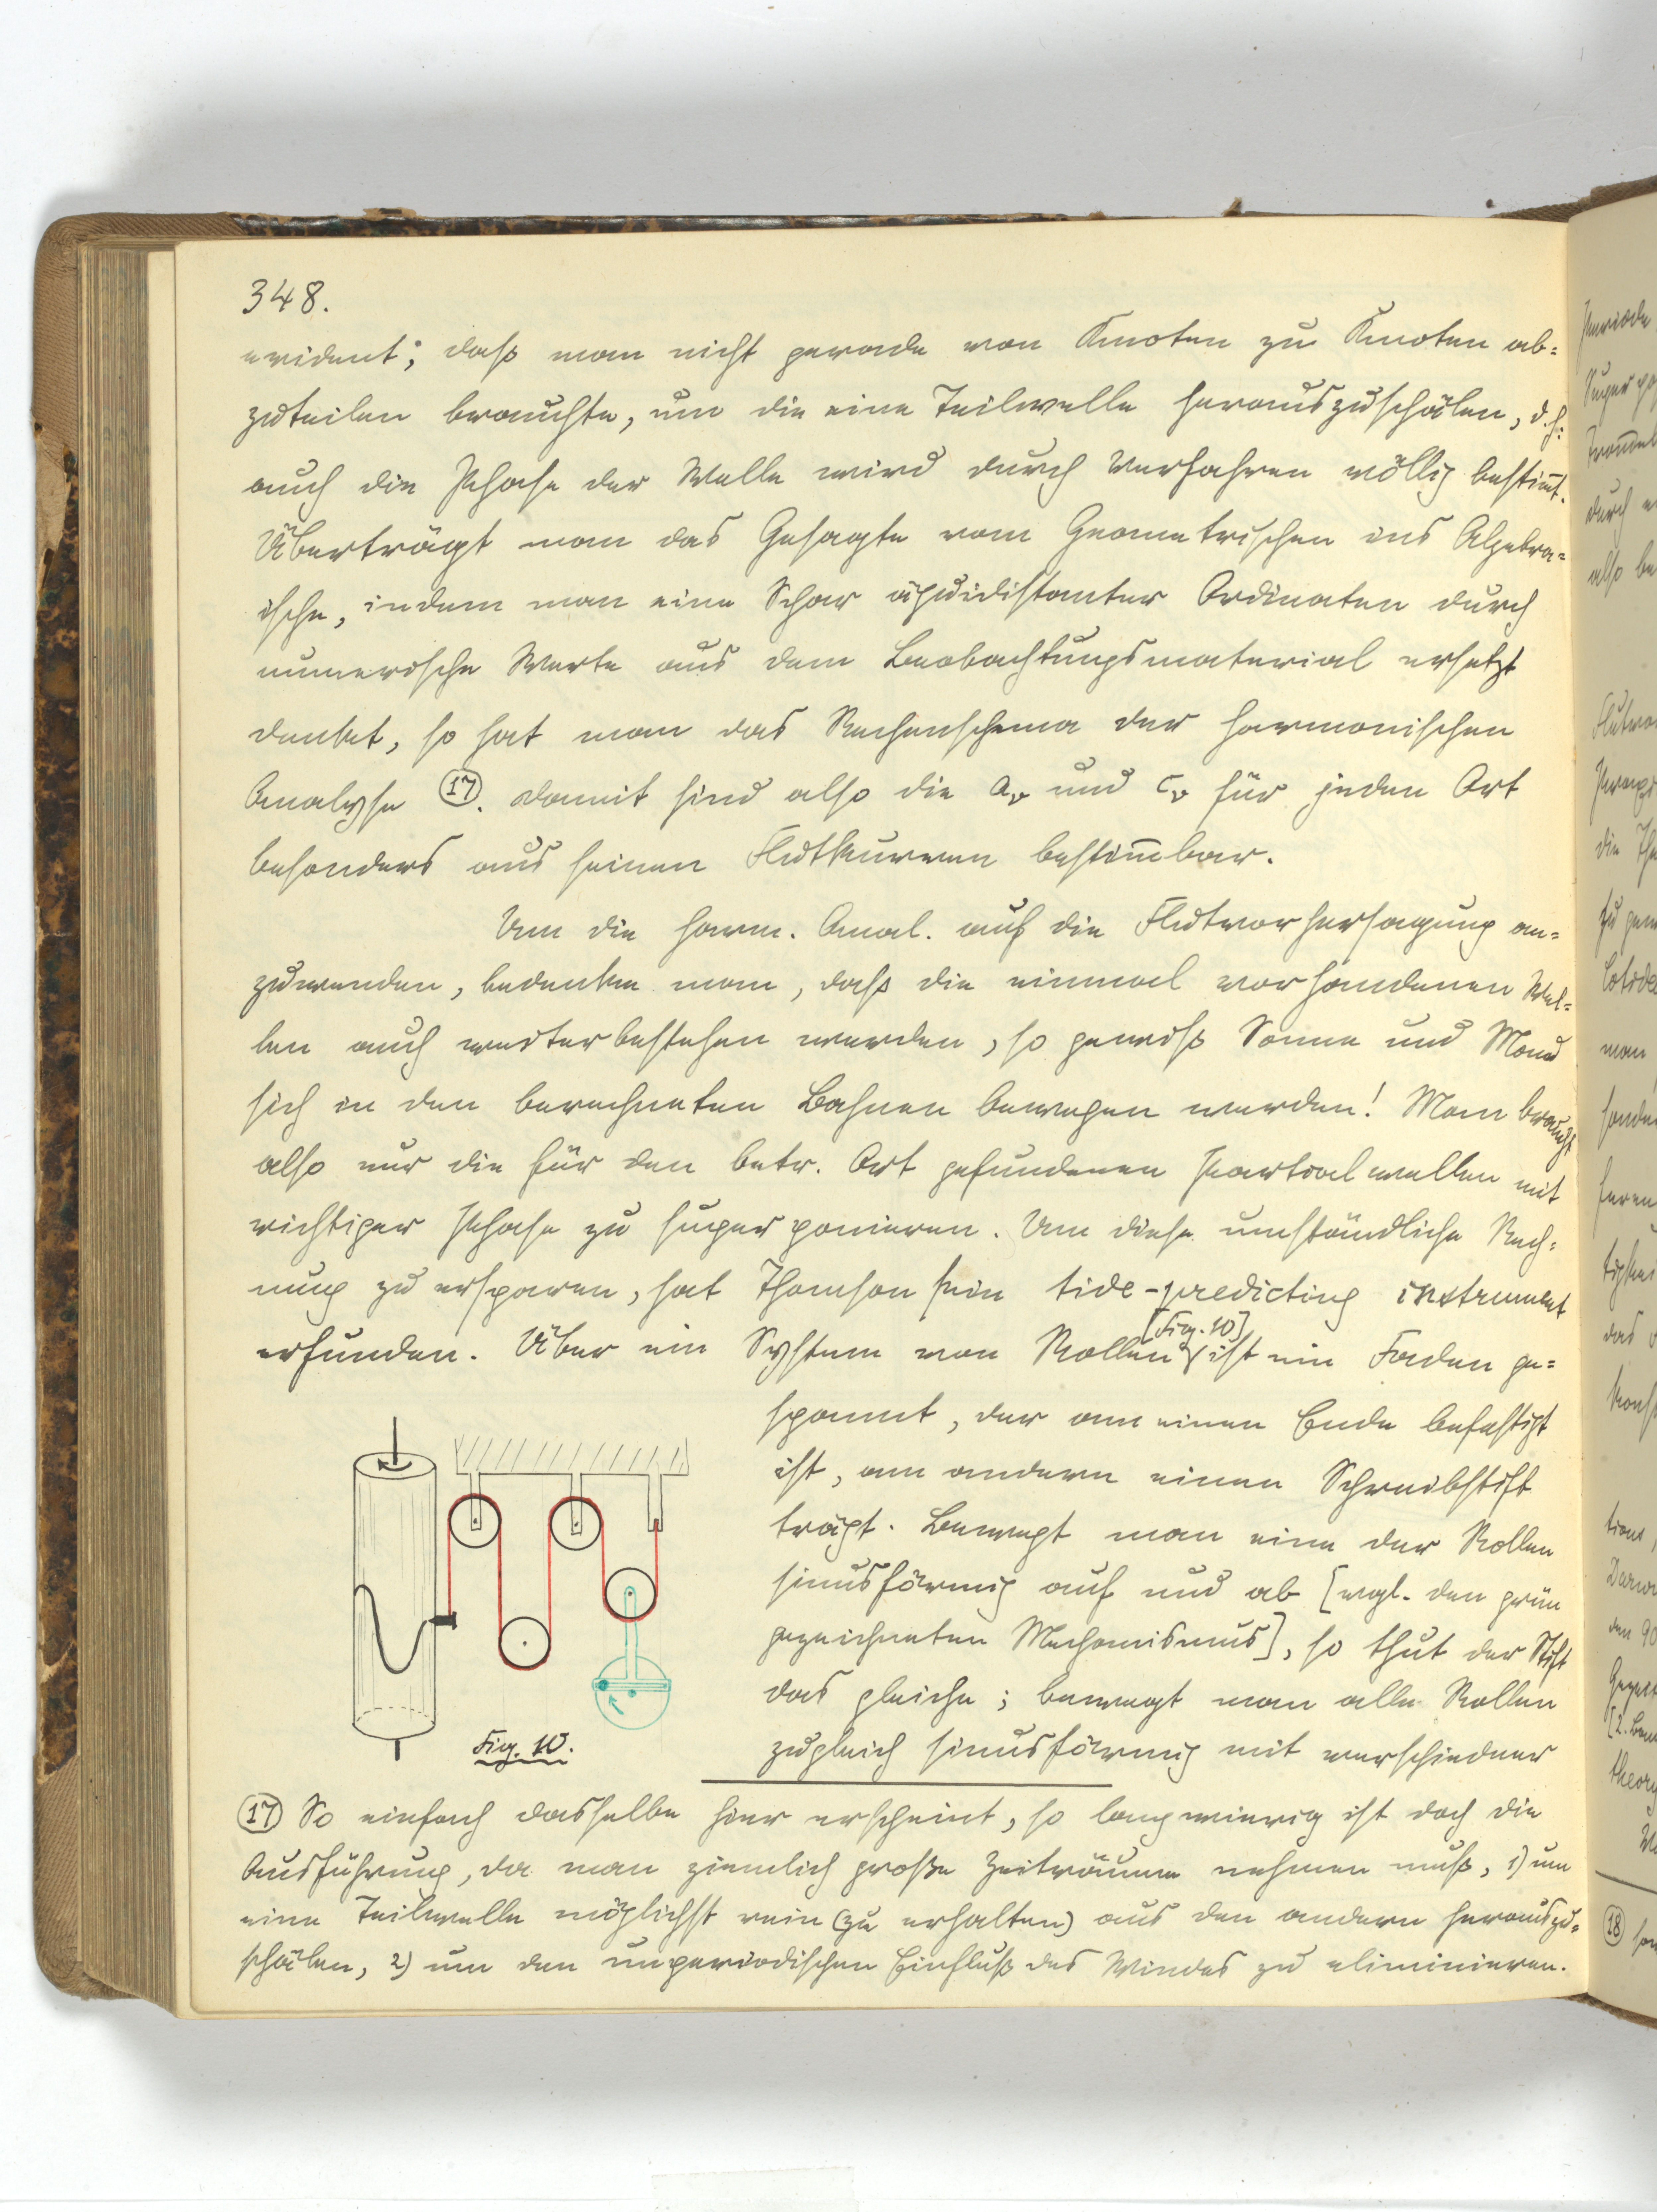 348.
evident; daß man nicht gerade von Knoten zu Knoten ab=
zuteilen brauchte, um die eine Teilwelle herauszuschälen, d.h:
auch die Phase der Welle wird durch Verfahren völlig bestim̅t.
Überträgt man das Gesagte vom Geometrischen ins Algebra=
ische, indem man eine Schar äquidistanter Ordinaten durch
numerische Werte aus dem Beobachtungsmaterial ersetzt
denket, so hat man das Rechenschema der harmonischen
Analyse (17). Damit sind also die aᵥ und cᵥ für jeden Ort
besonders aus seinen Flutkurven bestim̅bar.
Um die harm. Anal. auf die Flutvorhersagung an=
zuwenden, bedenke man, daß die einmal vorhandenen Wel=
len auch weiterbestehen werden, so gewiß Sonne und Mond
sich in den berechneten Bahnen bewegen werden! Man braucht
also nur die für den betr. Ort gefundenen Partialwellen mit
richtiger Phase zu superponieren. Um diese umständliche Rech=
nung zu ersparen, hat Thomson sein tide-predicting instrument
erfunden. Über ein System von Rollen [Fig. 10] ist ein Faden ge=
spannt, der am einen Ende befestigt
ist, am andern einen Schreibstift
trägt. Bewegt man eine der Rollen
sinusförmig auf und ab [vgl. den grün
gezeichneten Mechanismus], so thut der Stift
das gleiche; bewegt man alle Rollen
zugleich sinusförmig mit verschiedner
Fig. 10.
(17) So einfach dasselbe hier erscheint, so langwierig ist doch die
Ausführung, da man ziemlich große Zeiträume nehmen muß, 1) um
eine Teilwelle möglichst rein (zu erhalten) aus den andern herauszu=
schälen, 2) um den unperiodischen Einfluß des Windes zu eliminieren.
Periode
durch
also
man
das
theory
(18)